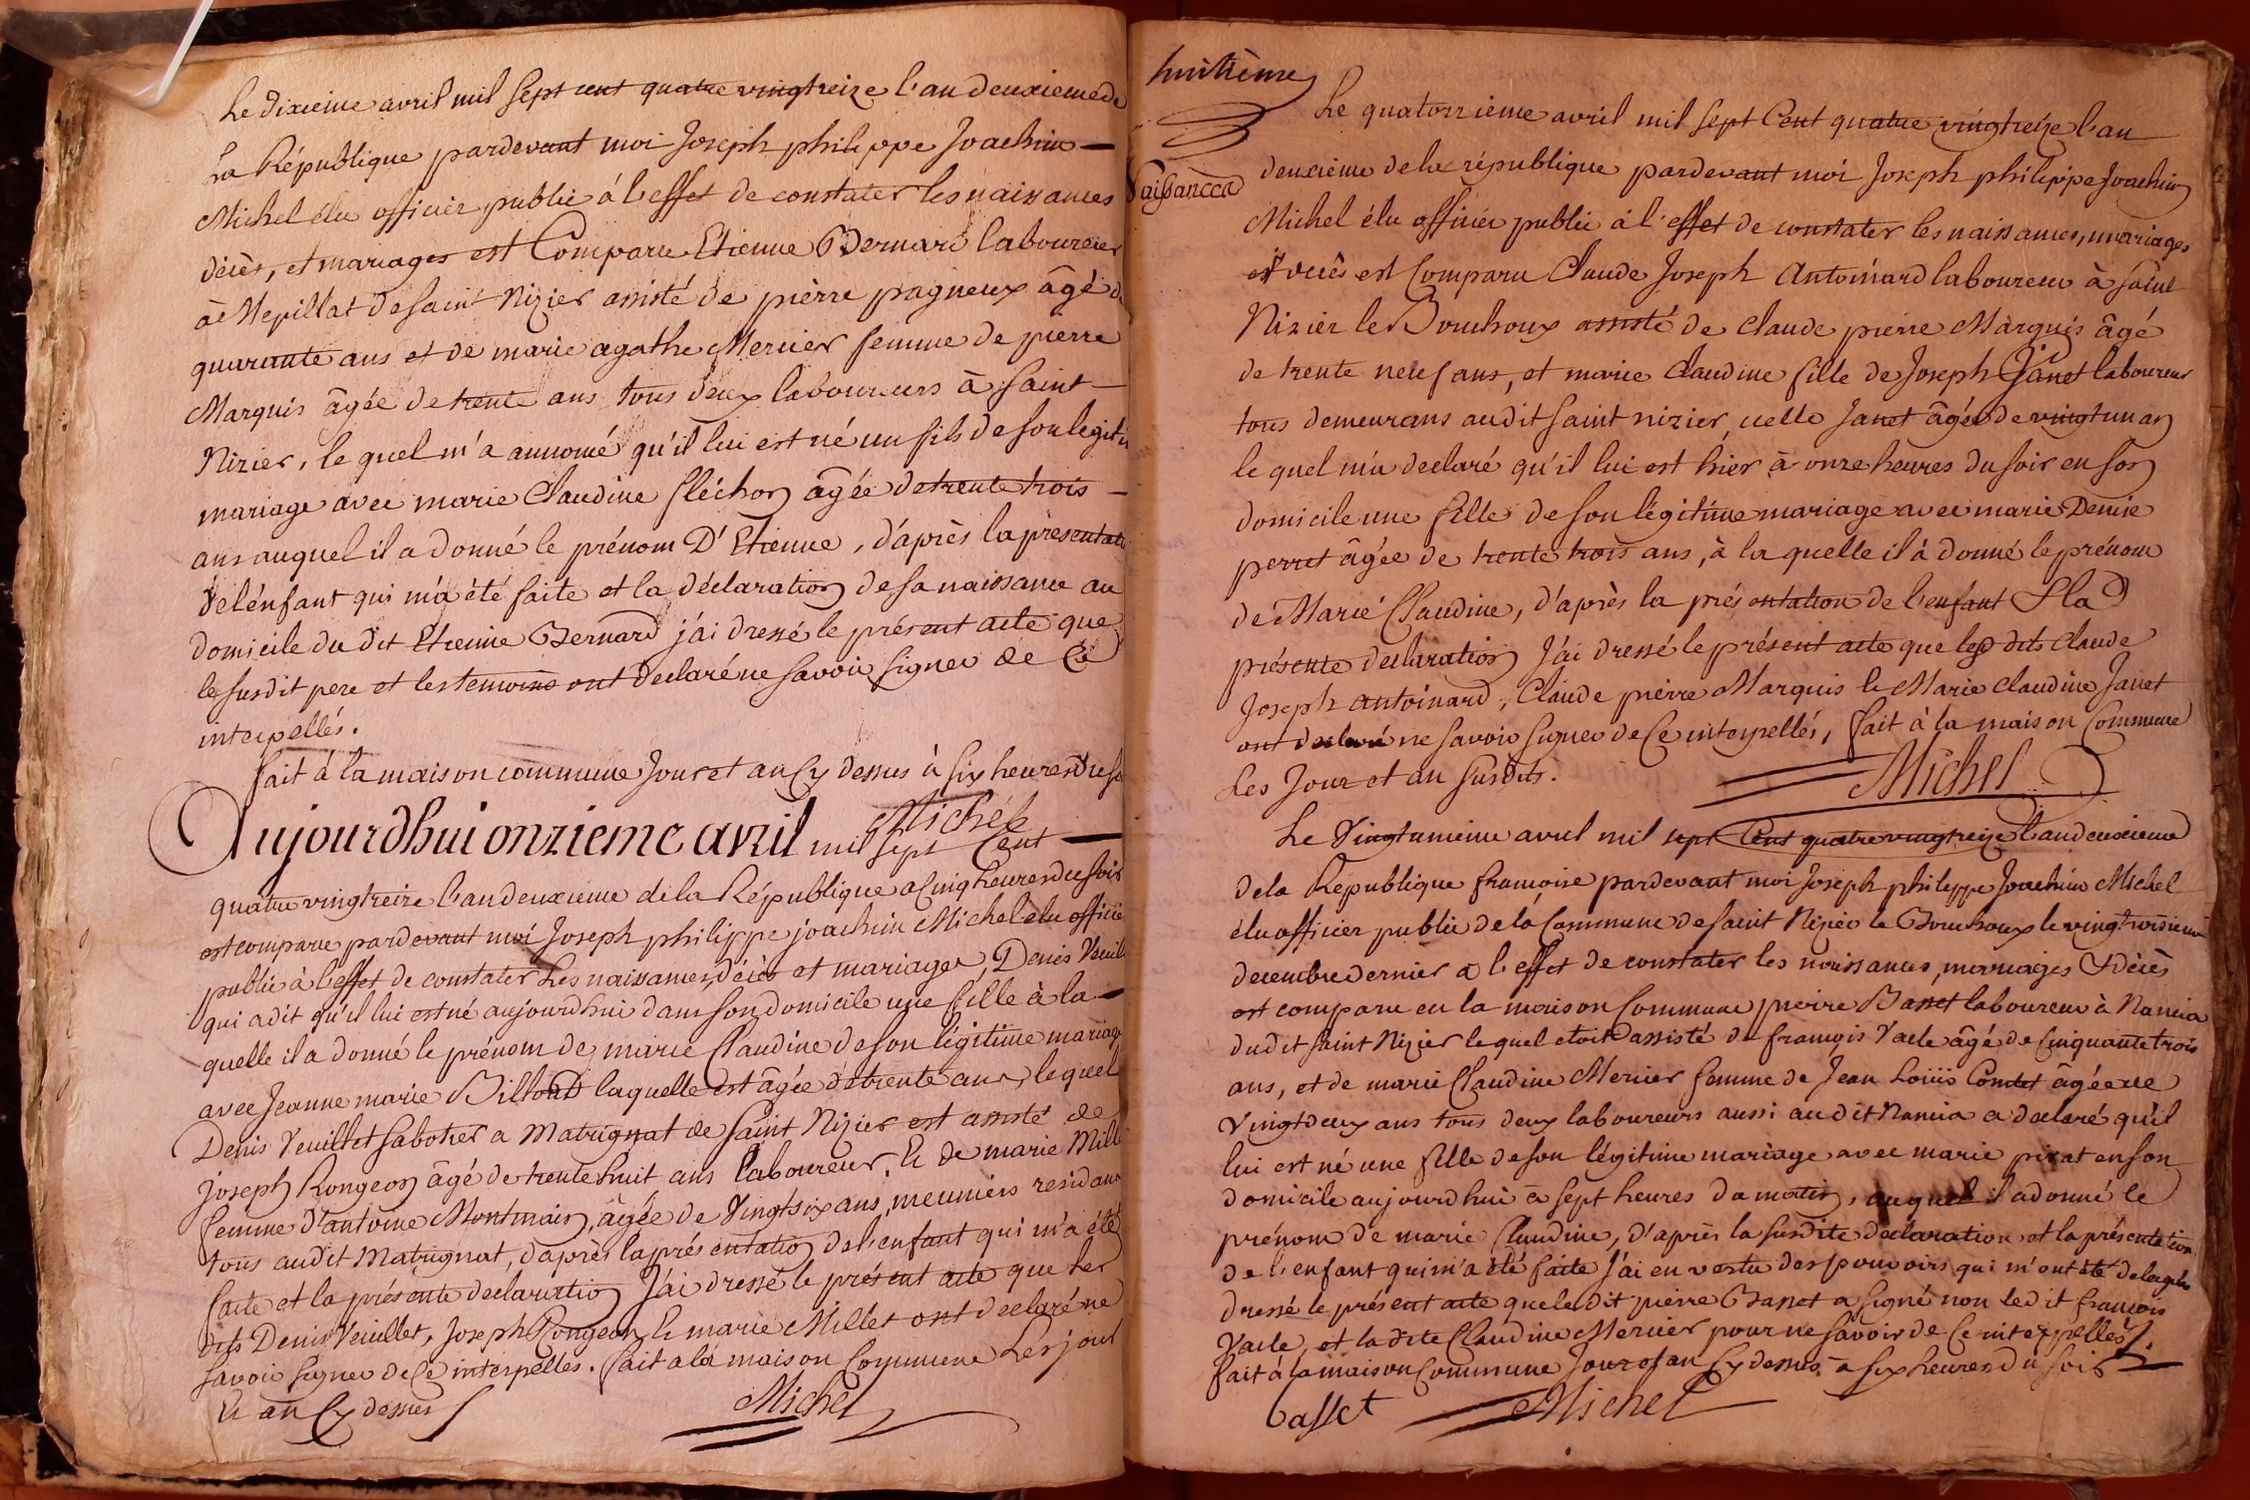 Le dixieme avril mil sept cent quatre vingtreize l'an deuxieme de
La République pardevant moi Joseph philippe Joachim
Michel élu officier public à l'effet de constater les naissances
décès, et mariages est Comparu Etienne Bernard laboureur
à Mepillat de saint Nizier assisté de pierre pagneux âgé de
quarante ans et de marie agathe Mercier femme de pierre
Marquis âgée de trente ans tous deux laboureurs à saint
Nizier, le quel m'a annoncé qu'il lui est né un fils de son legiti
mariage avec marie Claudine fléchon âgée de trente trois
ans auquel il a donné le prénom D'Etienne, d'après la présentati
de l'énfant qui m'a été faite et la déclaration de sa naissance au
domicile du dit Etienne Bernard j'ai dressé le présent acte que
le susdit pere et les temoins ont declaré ne savoir signer de Ce
interpellés.
fait à la maison commune Jour et an Cy dessus à six heures du so
Michel
Aujourdhui onzieme avril mil sept Cent
quatre vingtreize l'an deuxieme de la République a Cinq heures du soir
est comparu pardevant moi Joseph philippe joachim Michel élu officie
public à l'effet de constater Les naissances, décès et mariages, Denis Veuill
qui a dit qu'il lui est né aujourdhui dans son domicile une fille à la
quelle il a donné le prénom de marie Claudine de son légitime mariage
avec Jeanne marie Billoud laquelle est âgée de trente ans, lequel
Denis Veuillet sabotier a Matrignat de saint Nizier est assisté de
joseph Rongeon âgé de trente huit ans laboureur, & de marie Mille
femme d'antoine Montmain, âgée de Vingtsix ans, meuniers residans
tous audit Matrignat, d'après la présentation de l'enfant qui m'a été
faite et la présente declaration J'ai dressé le présent acte que les
dits Denis Veuillet, Joseph Rongeon & marie Millet ont declaré ne
savoir signer de Ce interpellés. fait a la maison Commune Les jour
& an Cy dessus
Michel
huitième
Naissances
Le quatorzieme avril mil sept Cent quatre vingtreize l'an
deuxieme de la république pardevant moi Joseph philippe Joachim
Michel élu officier public à l'effet de constater les naissances, mariages
et décès est Comparu Claude Joseph Antoinard laboureur à saint
Nizier le Bouchoux assisté de claude pierre Marquis âgé
de trente neuf ans, et marie claudine fille de Joseph Janet laboureur
tous demeurans audit saint nizier, celle Janet âgée de vingt un an
le quel m'a declaré qu'il lui est hier à onze heures du soir en son
domicile une fille de son légitime mariage avec marie Denise
perret âgée de trente trois ans, à la quelle il à donné le prénom
de Marie Claudine, d'après la présentation de l'enfant & la
présente declaration J'ai dressé le présent acte que les dits claude
Joseph antoinard, Claude pierre Marquis & Marie claudine Janet
ont declaré ne savoir signer de Ce interpellés, fait à la maison Commune
Les Jour et an susdits.
Michel
Le Vingtunieme avril mil sept Cent quatre vingtreize l'an deuxieme
de la République françoise pardevant moi Joseph philippe Joachim Michel
élu officier public de la Commune de saint Nizier le Bouchoux le vingt troisieme
decembre dernier a l'effet de constater les naissances, mariages & décès
est comparu en la maison Commune pierre Basset laboureur à Nancia
dudit saint Nizier lequel etoit assisté de françois Vacle âgé de Cinquante trois
ans, et de marie Claudine Mercier femme de Jean Loüis Comtet âgée de
Vingtdeux ans tous deux laboureurs aussi audit Nancia a declaré qu'il
lui est né une fille de son légitime mariage avec marie pirat en son
domicile aujourdhui à sept heures du matin, auquel il a donné le
prénom de marie Claudine, d'après la susdite declaration et la présentation
de l'enfant qui m'a été faite J'ai en vertu des pouvoirs qui m'ont été delegués
dressé le présent acte que le dit pierre Basset a signé non le dit françois
Vacle, et la dite Claudine Mercier pour ne savoir de Ce interpellés
fait à la maison Commune Jour et an Cy dessus à six heures du soir
basset
Michel